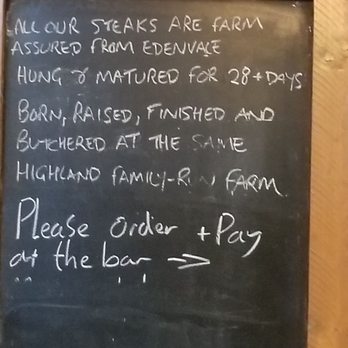 ALL OUR STEAKS ARE FARM
ASSURED FROM EDENVALE
HUNG & MATURED FOR 28+ DAYS
BORN, RAISED, FINISHED AND
BUTCHERED AT THE SAME
HIGHLAND FAMILY-RUN FARM
Please order + Pay
at the bar →